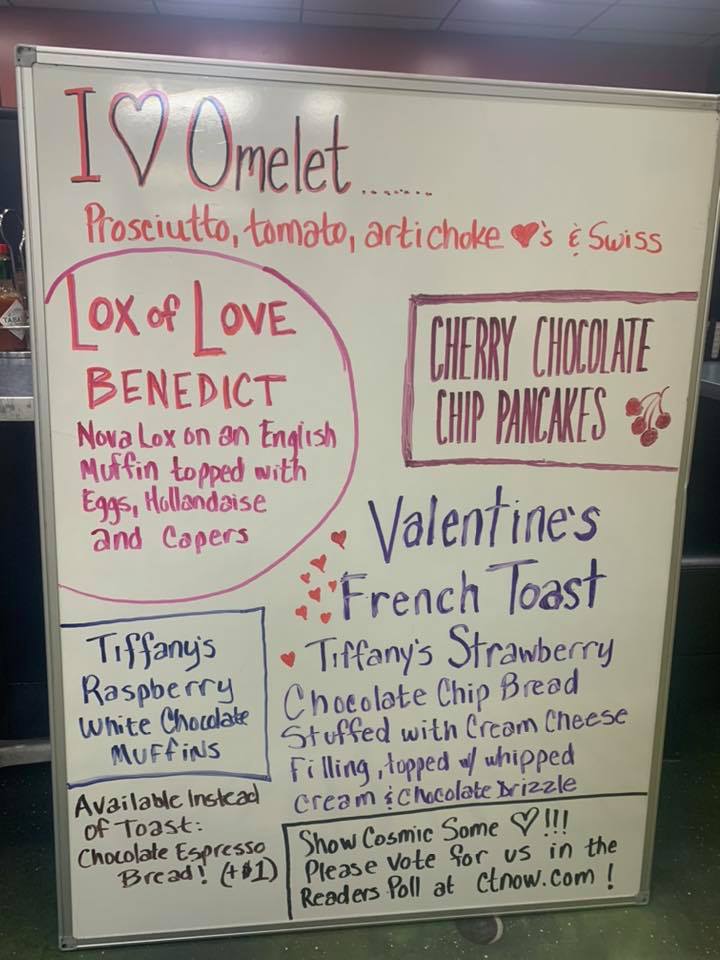 I ♡ Omelet.......
Prosciutto, tomato, artichoke ♥'s & Swiss
Lox of Love
BENEDICT
Nova Lox on an English
Muffin topped with
Eggs, Hollandaise
and Capers
CHERRY CHOCOLATE
CHIP PANCAKES
Valentine's
French Toast
♥ Tiffany's Strawberry
Chocolate Chip Bread
Stuffed with Cream Cheese
Filling, topped w/ whipped
Cream & Chocolate Drizzle
Tiffany's
Raspberry
White Chocolate
MUFFINS
Available Instead
of Toast:
Chocolate Espresso
Bread! (+$1)
Show Cosmic Some ♡!!!
Please Vote for us in the
Readers Poll at ctnow.com!